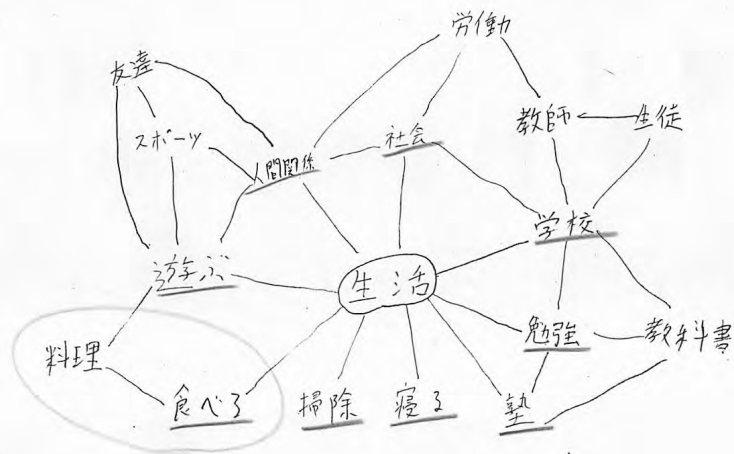 労働
友達
教師
生徒
スポーツ
社会
人間関係
学校
遊ぶ
生活
勉強
教科書
料理
食べる
掃除
寝る
塾